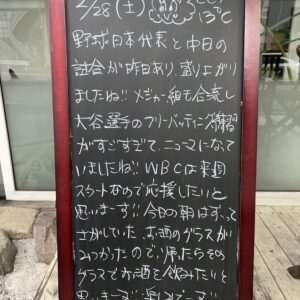 2/28(土)
13℃
野球日本代表と中日の
試合が昨日あり、盛り上がり
ましたね!!メジャー組も合流し
大谷選手のフリーバッティング練習
がすごすぎて、ニュースになって
いましたね!!WBCは来週
スタートなので応援したいと
思います!!今日の朝はずっと
さがしていた、お酒のグラスが
みつかったので、帰ったらその
グラスでお酒を飲みたいと
思います!!